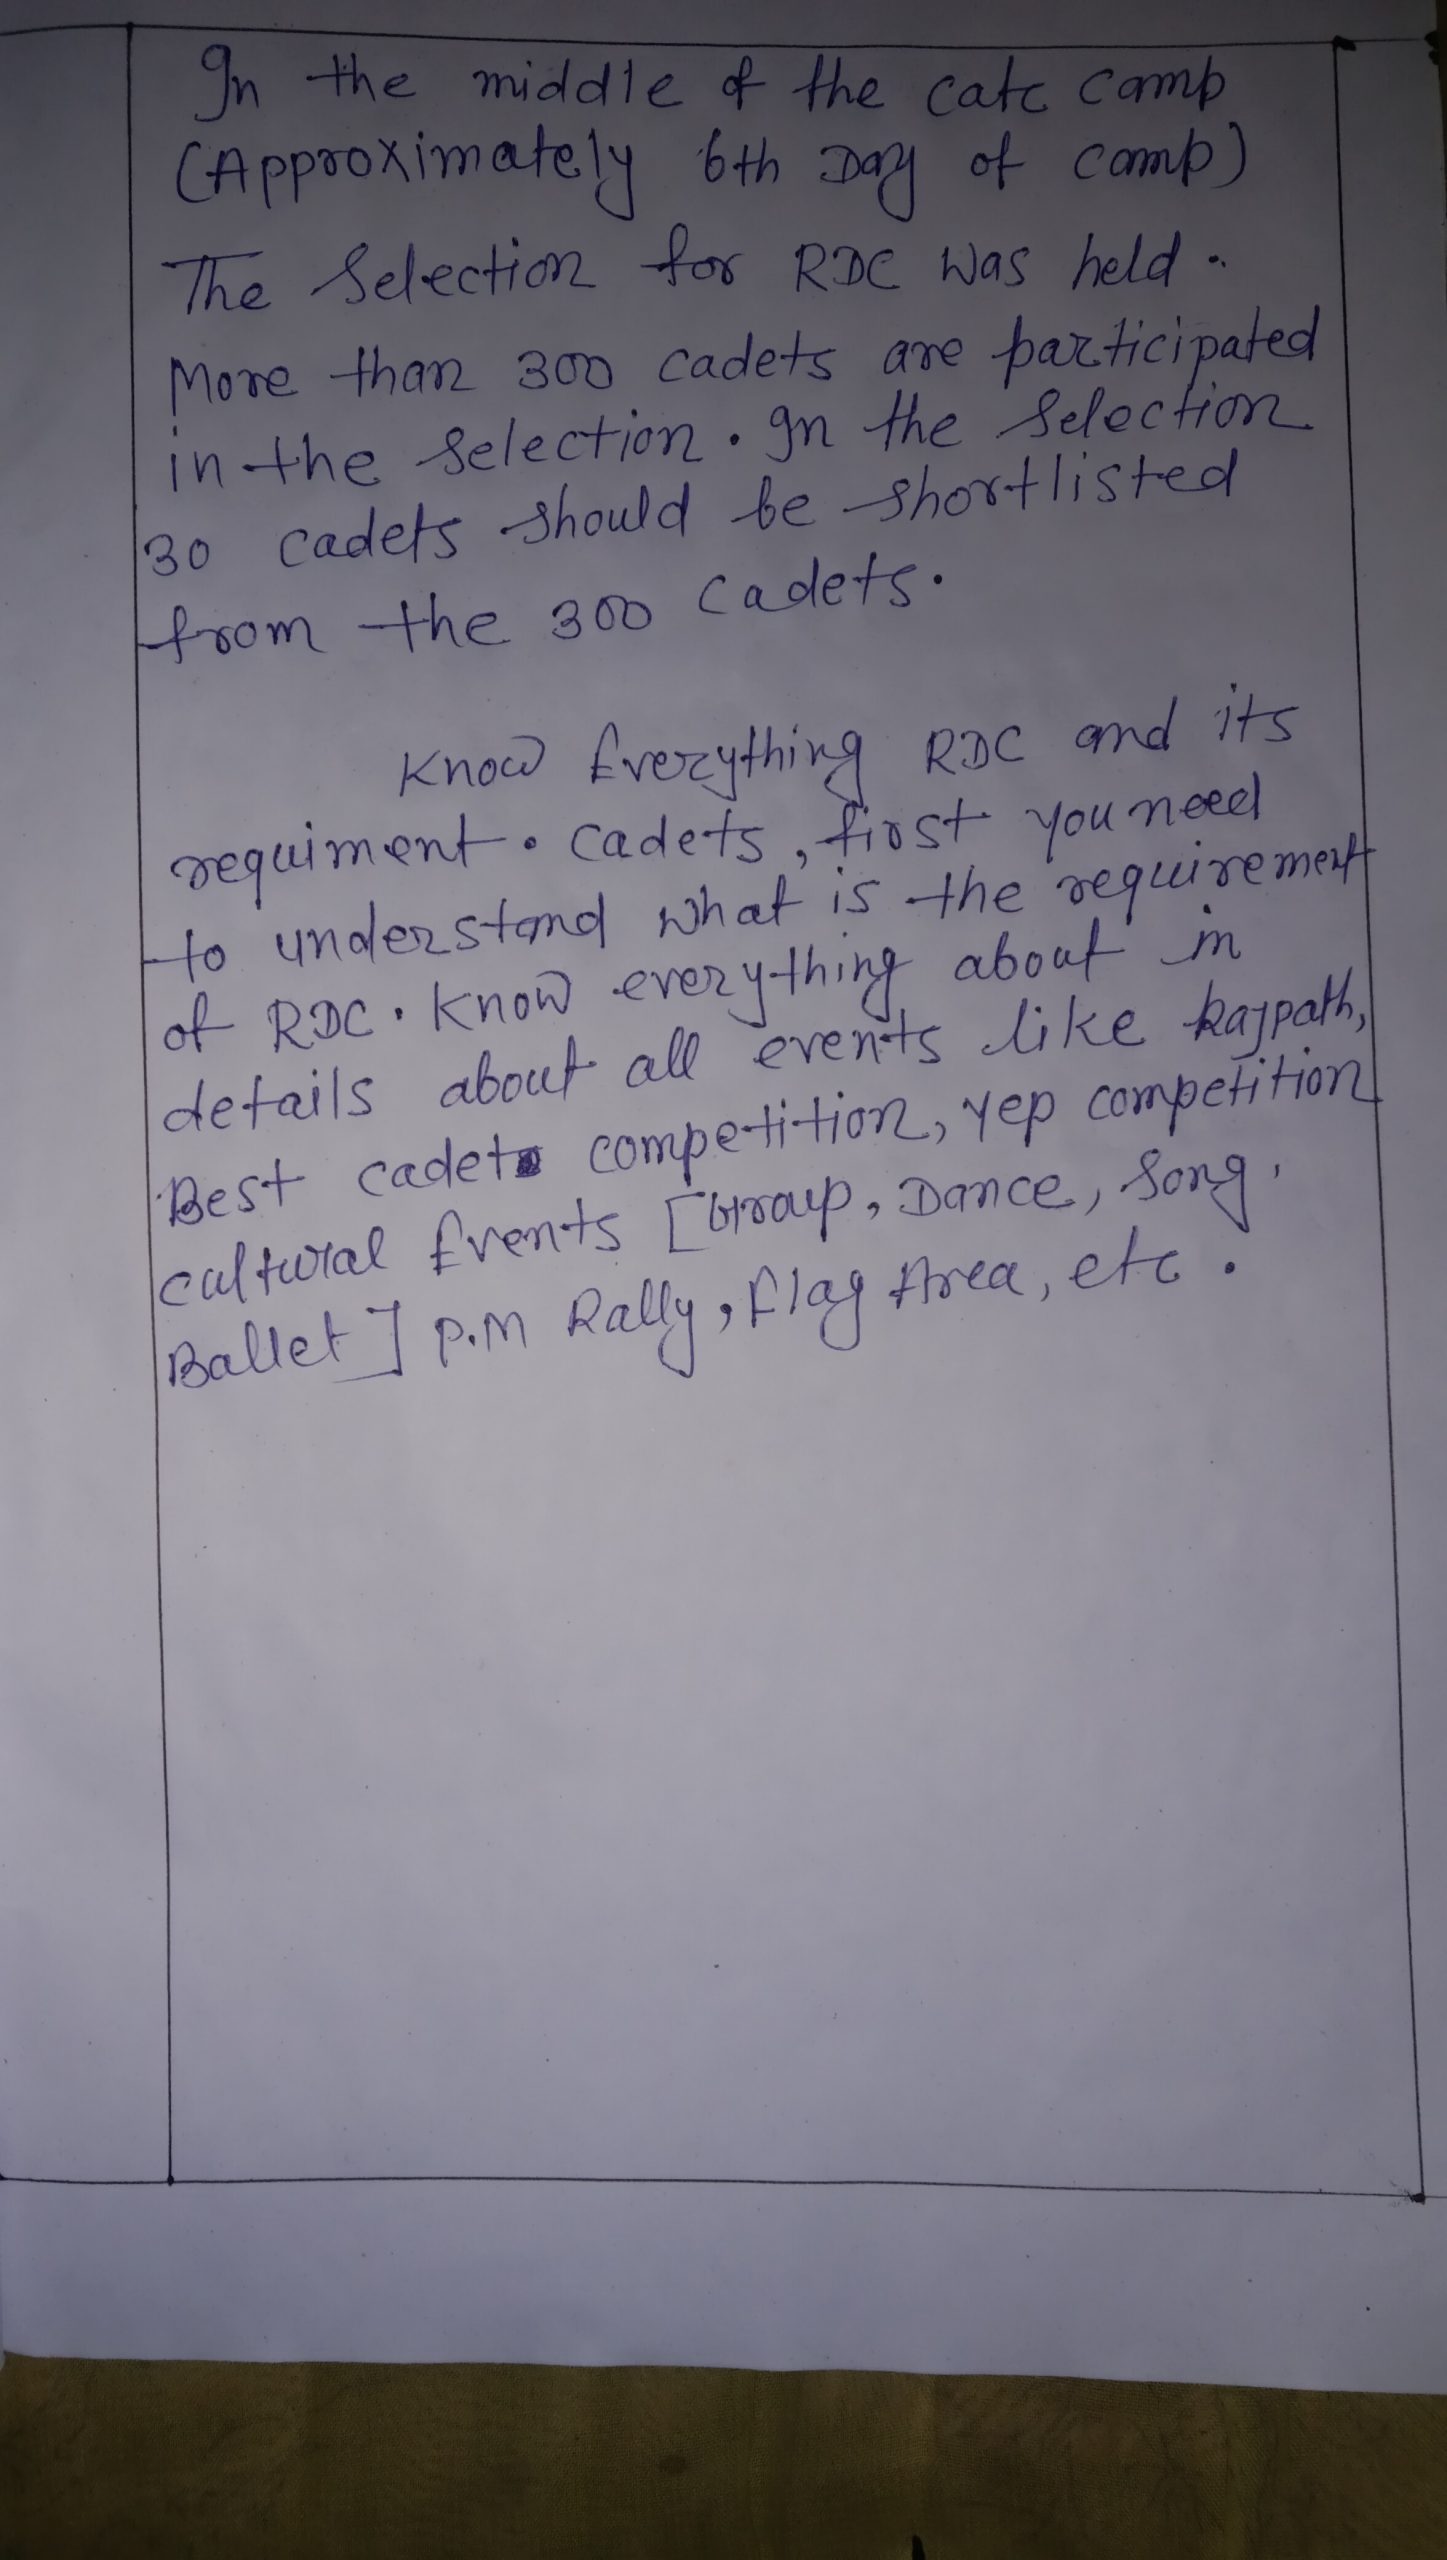 In the middle of the catc camp
(Approximately 6th Day of camp)
The Selection for RDC was held.
More than 300 cadets are participated
in the selection. In the Selection
30 cadets should be shortlisted
from the 300 cadets.
Know Everything RDC and its
requiment. cadets, first you need
to understand what is the requirement
of RDC. Know everything about in
details about all events like Rajpath,
Best cadet competition, Yep competition
cultural Events [Group, Dance, Song,
Ballet] P.M Rally, Flag Area, etc.